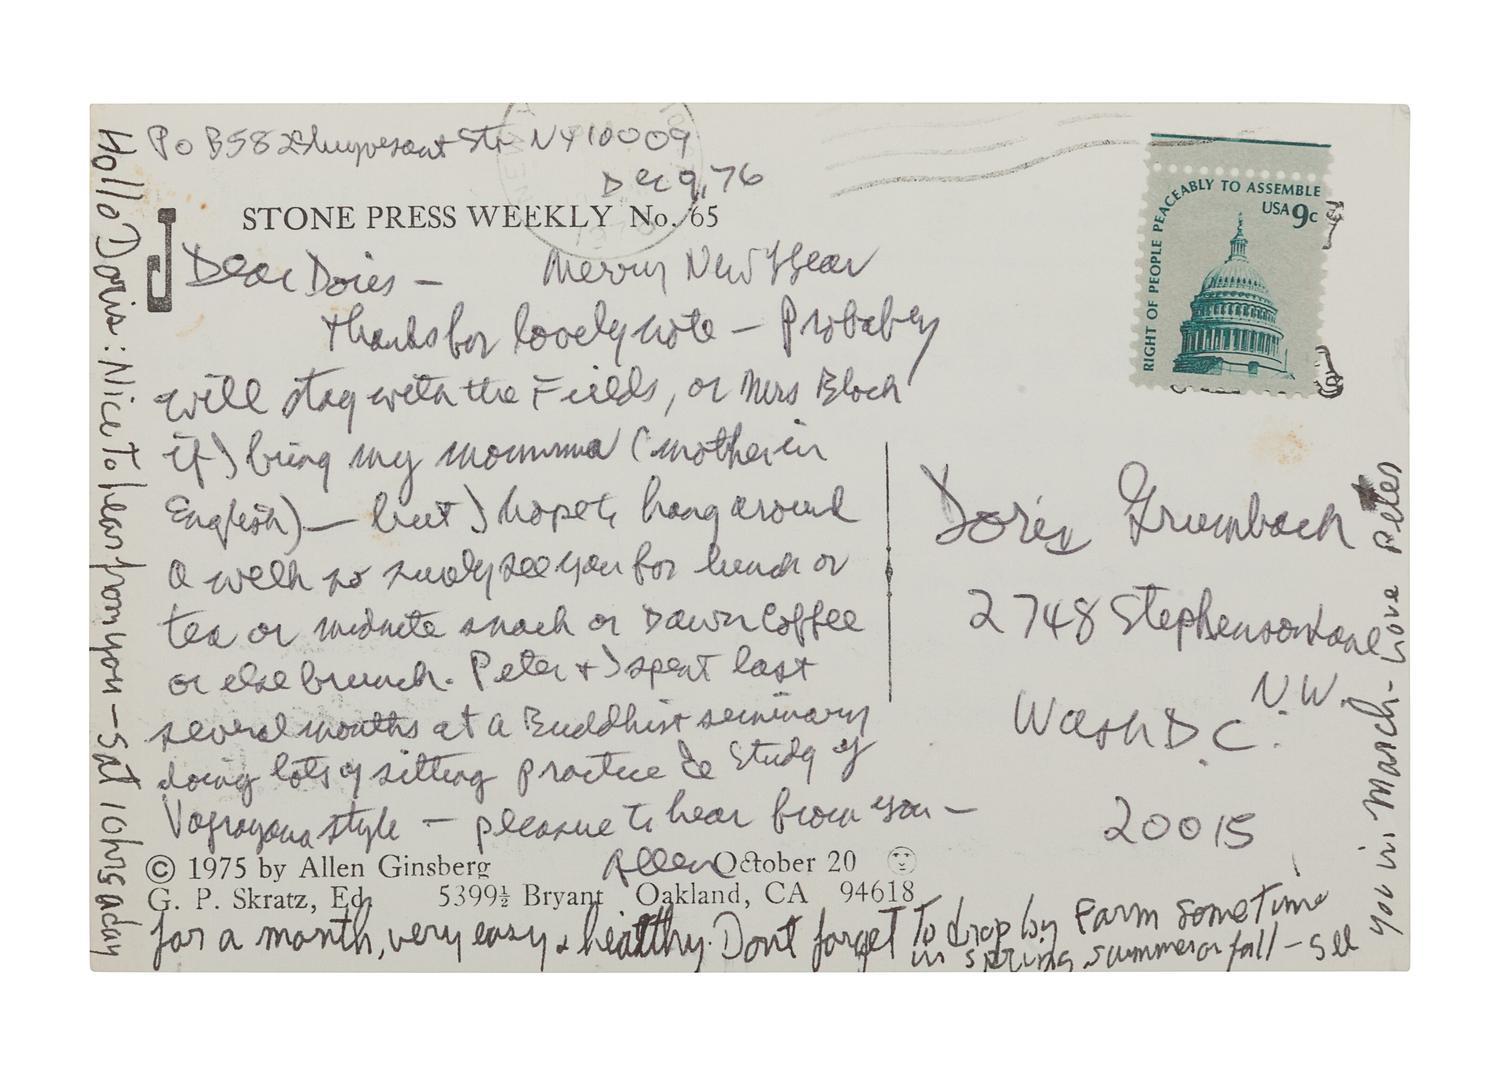 Po B 582 Stuyvesant Str NY 10009
Dec 9, 76
STONE PRESS WEEKLY No. 65
Dear Doris – Merry New Year
thanks for lovely note – Probabley
will stay with the Fields, or Mrs Bloch
if I bring my momma (mother in
English) – but I hope to hang around
a week so surely see you for lunch or
tea or midnite snack or Dawn Coffee
or else brunch. Peter + I spent last
several months at a Buddhist seminary
doing lots of sitting practice & Study of
Vajrayana style – pleasure to hear from you –
Allen
© 1975 by Allen Ginsberg October 20
G. P. Skratz, Ed. 5399½ Bryant Oakland, CA 94618
Hollo Doris: Nice to hear from you – Sat 10 hrs a day
for a month, very easy & healthy. Dont forget to drop by Farm sometime
in spring summer or fall – see
you in March – Love Peter
RIGHT OF PEOPLE PEACEABLY TO ASSEMBLE
USA 9c
Doris Grumbach
2748 Stephenson Lane
N.W.
Wash D.C.
20015